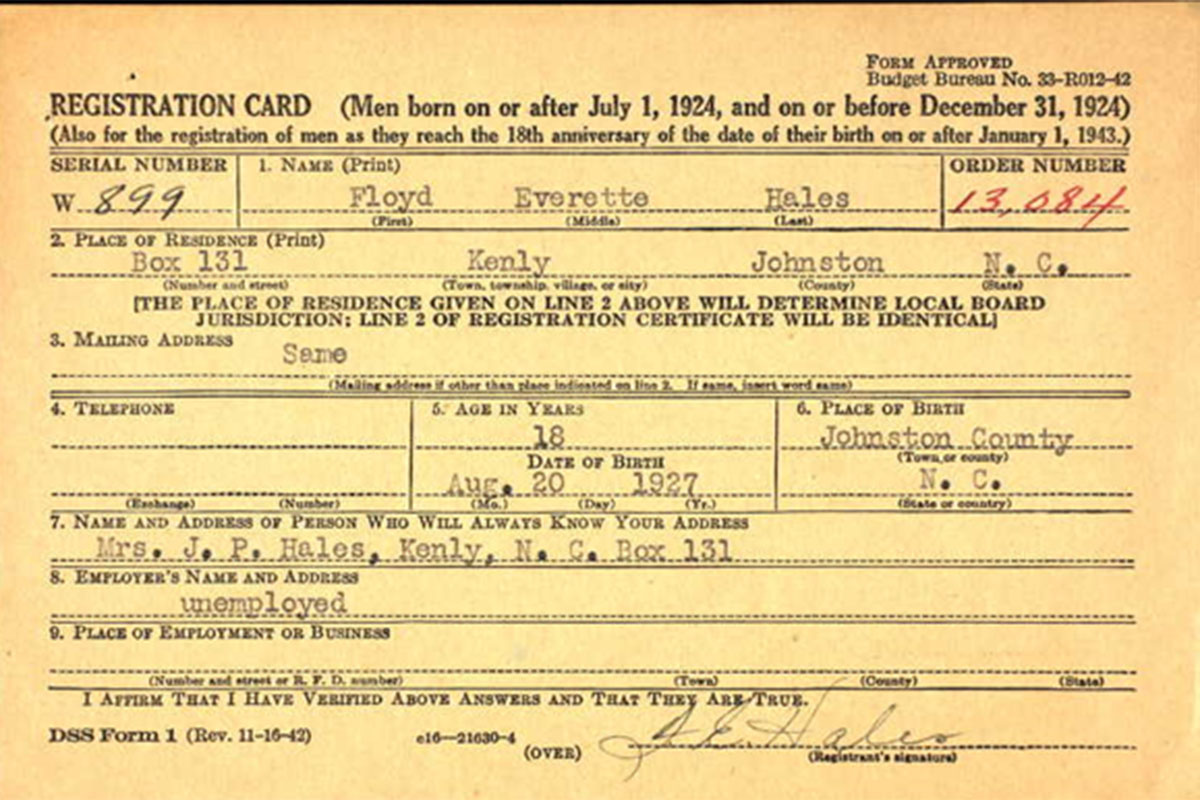 FORM APPROVED
Budget Bureau No. 33-R012-42
REGISTRATION CARD (Men born on or after July 1, 1924, and on or before December 31, 1924)
(Also for the registration of men as they reach the 18th anniversary of the date of their birth on or after January 1, 1943.)
SERIAL NUMBER 1. NAME (Print) ORDER NUMBER
W 899 Floyd Everette Hales 13,084
(First) (Middle) (Last)
2. PLACE OF RESIDENCE (Print)
Box 131 Kenly Johnston N. C.
(Number and street) (Town, township, village, or city) (County) (State)
[THE PLACE OF RESIDENCE GIVEN ON LINE 2 ABOVE WILL DETERMINE LOCAL BOARD
JURISDICTION; LINE 2 OF REGISTRATION CERTIFICATE WILL BE IDENTICAL]
3. MAILING ADDRESS
Same
(Mailing address if other than place indicated on line 2. If same, insert word same)
4. TELEPHONE 5. AGE IN YEARS 6. PLACE OF BIRTH
18 Johnston County
DATE OF BIRTH (Town or county)
Aug. 20 1927 N. C.
(Exchange) (Number) (Mo.) (Day) (Yr.) (State or country)
7. NAME AND ADDRESS OF PERSON WHO WILL ALWAYS KNOW YOUR ADDRESS
Mrs. J. P. Hales, Kenly, N. C. Box 131
8. EMPLOYER'S NAME AND ADDRESS
unemployed
9. PLACE OF EMPLOYMENT OR BUSINESS
(Number and street or R. F. D. number) (Town) (County) (State)
I AFFIRM THAT I HAVE VERIFIED ABOVE ANSWERS AND THAT THEY ARE TRUE.
DSS Form 1 (Rev. 11-16-42) c16—21630-4 (OVER) Hales
(Registrant's signature)